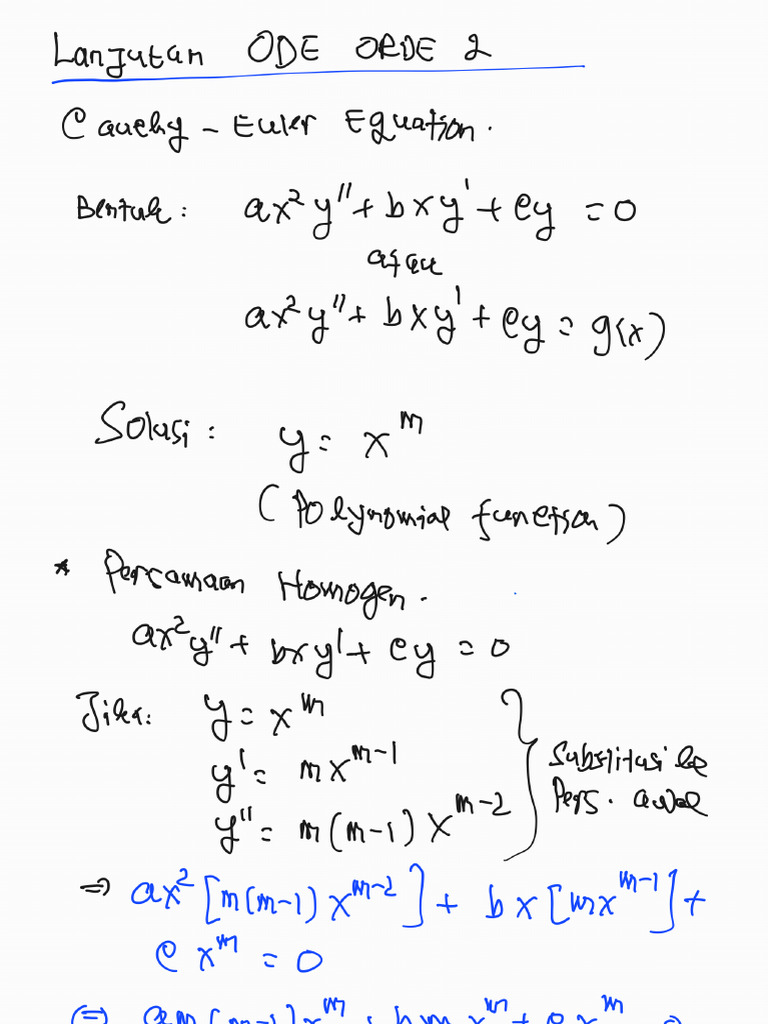 Lanjutan ODE ORDE 2
Cauchy - Euler Equation.
Bentuk: ax² y'' + bxy' + cy = 0
atau
ax² y'' + bxy' + cy = g(x)
Solusi: y = x^m
(Polynomial function)
* Persamaan Homogen.
ax²y'' + bxy' + cy = 0
Jika: y = x^m
y' = mx^{m-1}
y'' = m(m-1) x^{m-2}
Substitusi ke
Pers. awal
⇒ ax² [m(m-1) x^{m-2}] + bx [mx^{m-1}] +
c x^m = 0